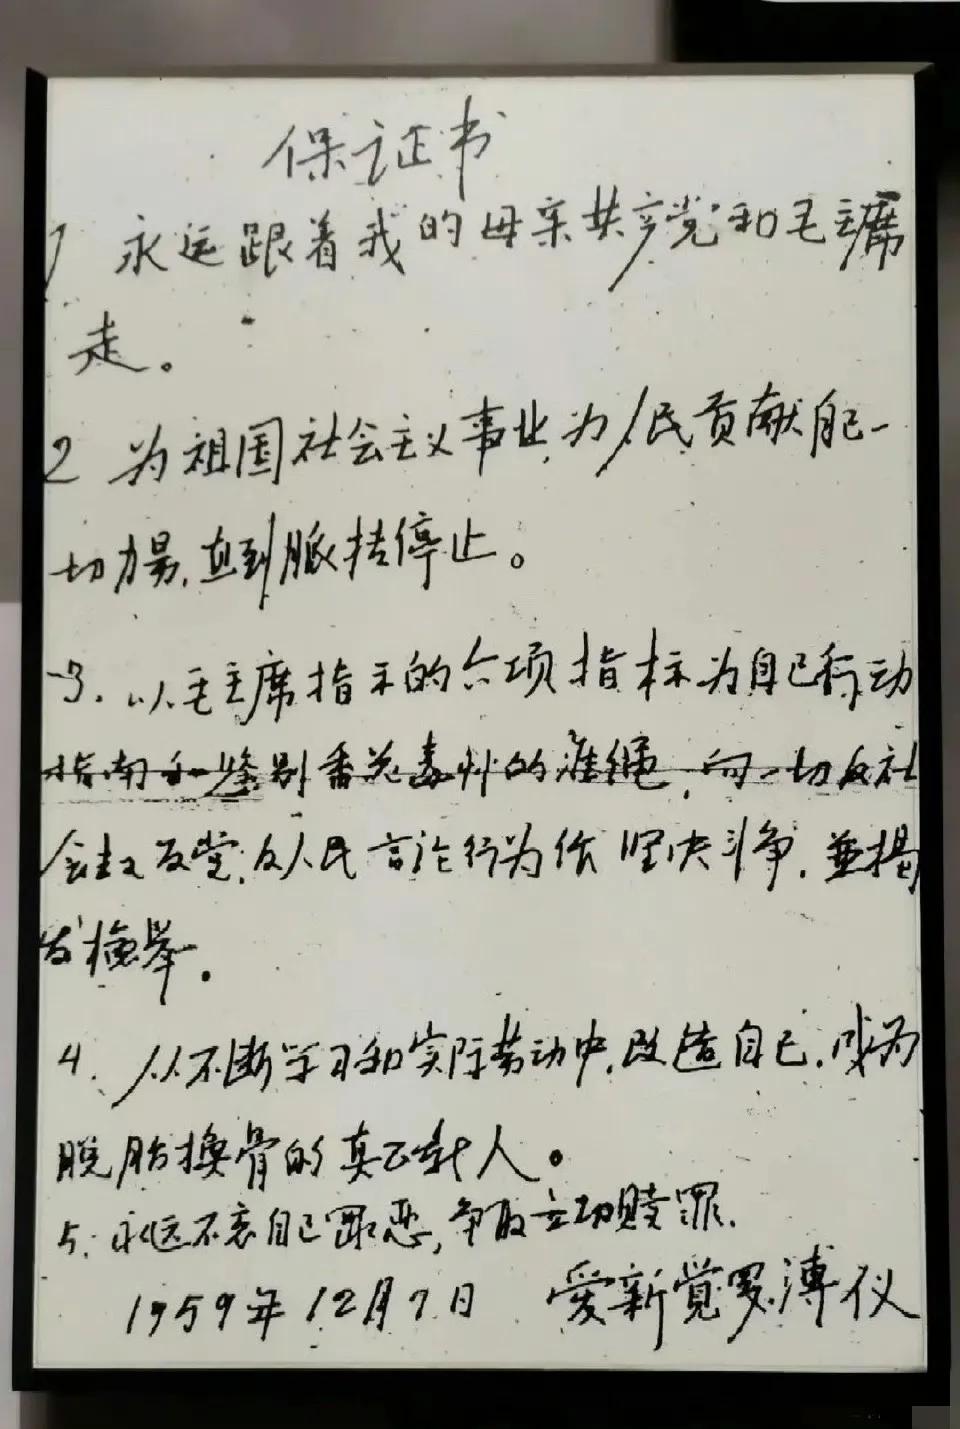 保证书
1 永远跟着我的母亲共产党和毛主席
走。
2 为祖国社会主义事业,为人民贡献自己一
切力量,直到脉搏停止。
3. 以毛主席指示的六项指标为自己行动
指南和鉴别香花毒草的准绳,向一切反社
会主义反党,反人民言论行为作坚决斗争,並揭
发检举。
4. 从不断学习和实际劳动中,改造自己,成为
脱胎换骨的真正新人。
5. 永远不忘自己罪恶,争取立功赎罪.
1959年12月7日 愛新覺罗溥仪